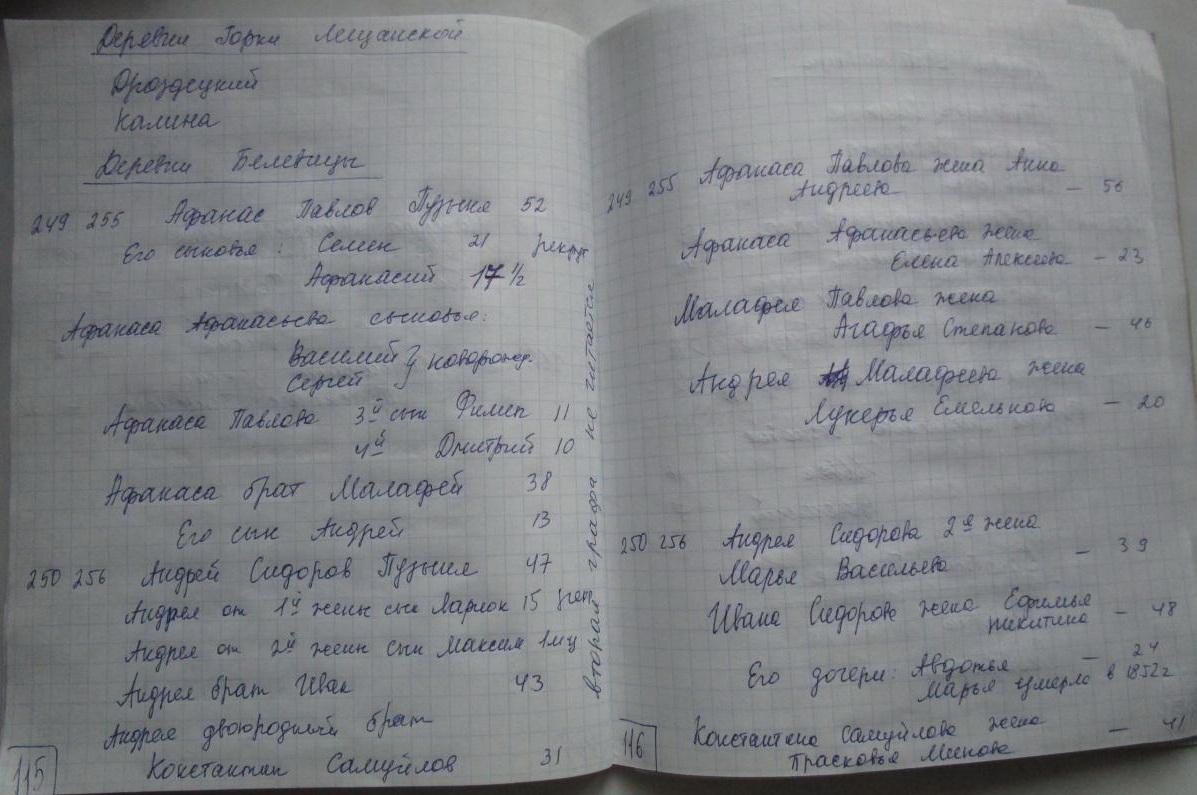 Деревни Горки Лещанской
Дроздецкий
Калина
Деревни Белевицы
249 255 Афанас Павлов Пузыня 52
Его сыновья: Семен 21 рекрут
Афанасий 17 1/2
Афанаса Афанасьева сыновья:
Василий } новорожд.
Сергей
Афанаса Павлова 3й сын Филип 11
4й Дмитрий 10
Афанаса брат Малафей 38
Его сын Андрей 13
250 256 Андрей Сидоров Пузыня 47
Андрея от 1й жены сын Ларион 15
Андрея от 2й жены сын Максим 1 мц
Андрея брат Иван 43
Андрея двоюродный брат
Константин Самуйлов 31
115
вторая графа не читается
249 255 Афанаса Павлова жена Анна
Андреева – 56
Афанаса Афанасьева жена
Елена Алексеева – 23
Малафея Павлова жена
Агафья Степанова – 46
Андрея Малафеева жена
Лукерья Емельянова – 20
250 256 Андрея Сидорова 2я жена
Марья Васильева – 39
Ивана Сидорова жена Ефимья
Никитина – 48
Его дочери: Авдотья – 24
Марья умерла в 1852 г
Константина Самуйлова жена
Прасковья Минова – 41
116